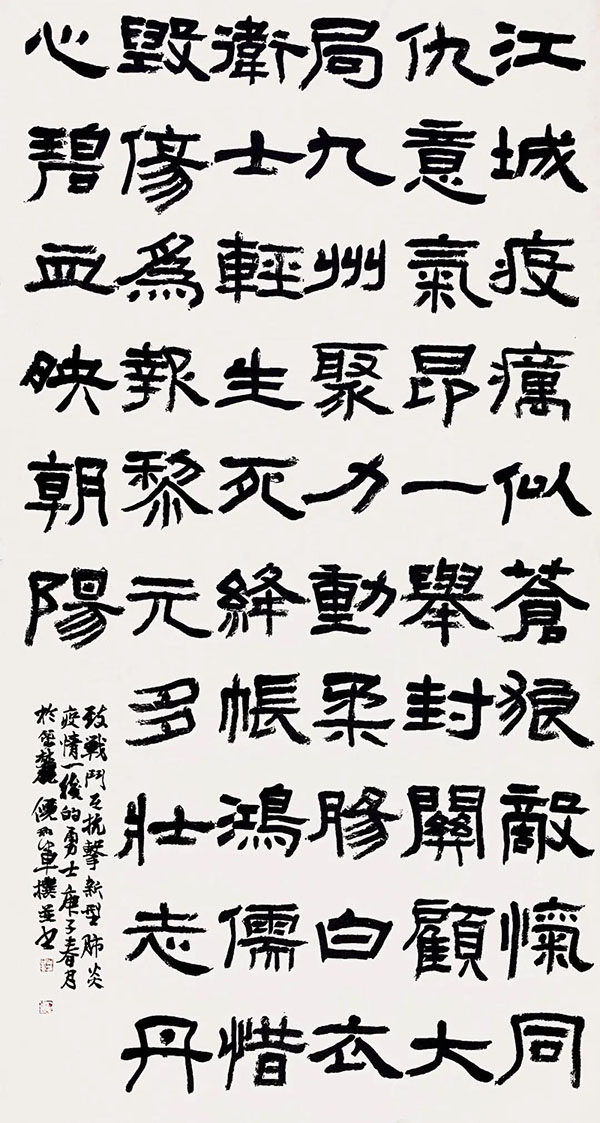 江城疫癘似蒼狼敵愾同
仇意氣昂一舉封關顧大
局九州聚力動柔腸白衣
衛士輕生死絳帳鴻儒惜
毀傷爲報黎元多壯志丹
心碧血映朝陽
致戰鬥在抗擊新型肺炎
疫情一線的勇士庚子春月
於麓撰並書